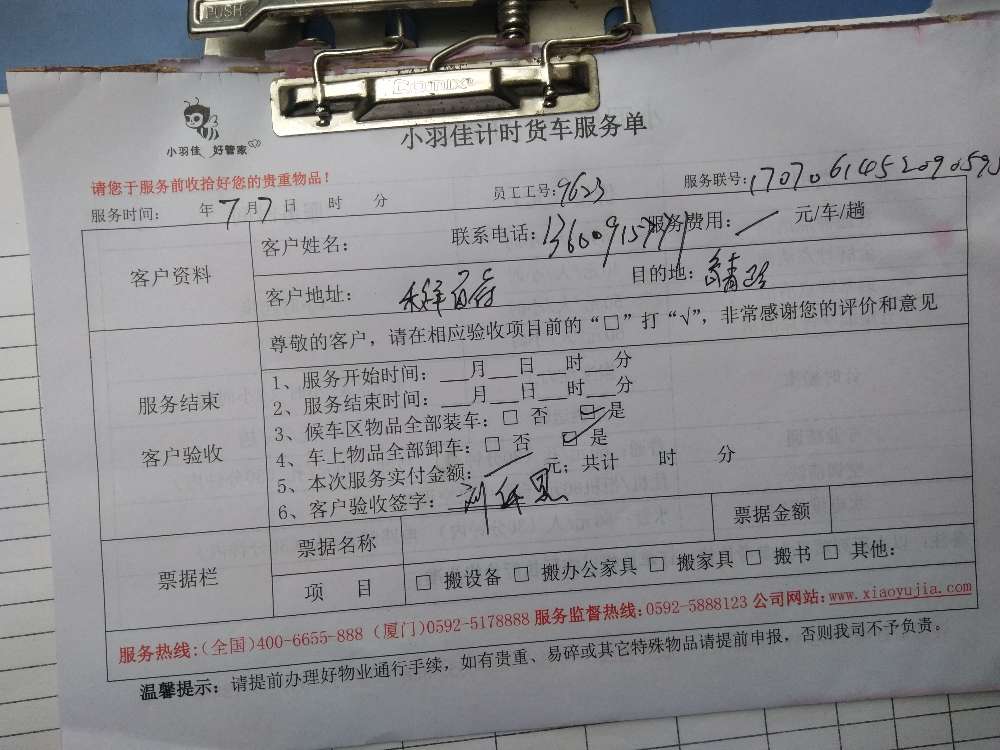 PUSH
Comix
小羽佳 好管家
小羽佳计时货车服务单
请您于服务前收拾好您的贵重物品！
服务时间： 年7月7日 时 分 员工工号：9623 服务联号：
客户资料
客户姓名： 联系电话： 服务费用： 元/车/趟
客户地址： 目的地：
服务结束
客户验收
尊敬的客户，请在相应验收项目前的“□”打“√”，非常感谢您的评价和意见
1、服务开始时间：___月___日___时___分
2、服务结束时间：___月___日___时___分
3、候车区物品全部装车：□ 否 ☑ 是
4、车上物品全部卸车：□ 否 ☑ 是
5、本次服务实付金额： 元；共计 时 分
6、客户验收签字：
票据栏
票据名称 票据金额
项 目 □ 搬设备 □ 搬办公家具 □ 搬家具 □ 搬书 □ 其他：
服务热线：(全国)400-6655-888 (厦门)0592-5178888 服务监督热线：0592-5888123 公司网站：www.xiaoyujia.com
温馨提示：请提前办理好物业通行手续，如有贵重、易碎或其它特殊物品请提前申报，否则我司不予负责。